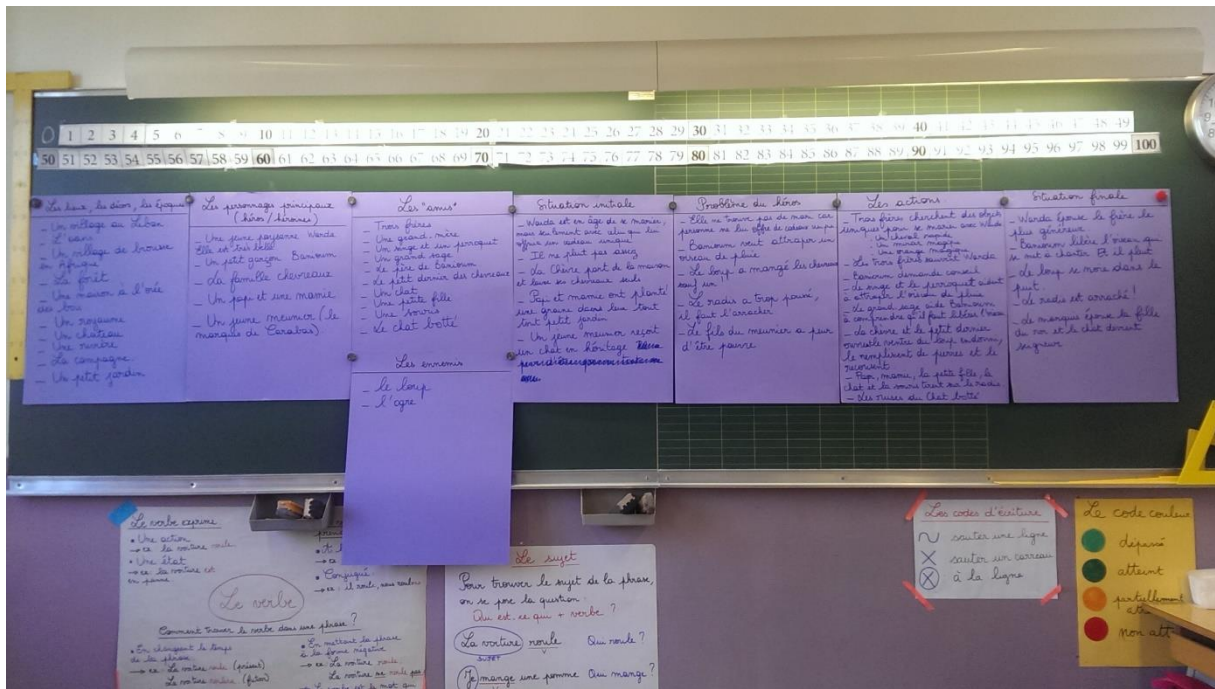 0 1 2 3 4 5 6 7 8 9 10 11 12 13 14 15 16 17 18 19 20 21 22 23 24 25 26 27 28 29 30 31 32 33 34 35 36 37 38 39 40 41 42 43 44 45 46 47 48 49
50 51 52 53 54 55 56 57 58 59 60 61 62 63 64 65 66 67 68 69 70 71 72 73 74 75 76 77 78 79 80 81 82 83 84 85 86 87 88 89 90 91 92 93 94 95 96 97 98 99 100
Les lieux, les décors, les époques
- Un village au Liban
- L'oasis
- Un village de brousse
en Afrique
- La forêt
- Une maison à l'orée
des bois
- Un royaume
- Un château
- Une rivière
- La campagne
- Un petit jardin
Les personnages principaux
(héros / héroïnes)
- Une jeune paysanne Warda
Elle est très belle
- Un petit garçon Banioum
- La famille chevreaux
- Un papi et une mamie
- Un jeune meunier (le
marquis de Carabas)
Les "amis"
- Trois frères
- Une grand-mère
- Un singe et un perroquet
- Un grand sage
- Le père de Banioum
- Le petit dernier des chevreaux
- Un chat
- Une petite fille
- Une souris
- Le chat botté
Les ennemis
- le loup
- l'ogre
Situation initiale
- Warda est en âge de se marier,
mais seulement avec celui qui lui
offrira un cadeau unique
- Il ne pleut pas assez
- La Chèvre part de la maison
et laisse ses chevreaux seuls
- Papi et mamie ont planté
une graine dans leur tout
tout petit jardin
- Un jeune meunier reçoit
un chat en héritage
Problème du héros
- Elle ne trouve pas de mari car
personne ne lui offre de cadeau unique
- Banioum veut attraper un
oiseau de pluie
- Le loup a mangé les chevreaux
sauf un
- Le radis a trop poussé,
il faut l'arracher
- Le fils du meunier a peur
d'être pauvre
Les actions
- Trois frères cherchent des objets
uniques pour se marier avec Warda
. Un cheval rapide
. Un miroir magique
. Une orange magique
- Les trois frères sauvent Warda
- Banioum demande conseil
- Le singe et le perroquet aident
à attraper l'oiseau de pluie
- Le grand sage aide Banioum
à comprendre qu'il faut libérer l'oiseau
- La chèvre et le petit dernier
ouvrent le ventre du loup endormi,
le remplissent de pierres et le
recousent
- Papi, mamie, la petite fille, le
chat et la souris tirent sur le radis
- Les ruses du Chat botté
Situation finale
- Warda épouse le frère le
plus généreux
- Banioum libère l'oiseau qui
se met à chanter. Et il pleut
- Le loup se noie dans le
puit.
- Le radis est arraché !
- Le marquis épouse la fille
du roi et le chat devient
seigneur
Le verbe exprime
• Une action
→ ex : la voiture roule
• Un état
→ ex : la voiture est
en panne
• Conjugué
→ ex : il roule, nous roulons
Le verbe
Comment trouver le verbe dans une phrase ?
• En changeant le temps
de la phrase
→ ex : La voiture roule (présent)
La voiture roulera (futur)
• En mettant la phrase
à la forme négative
→ ex : La voiture roule
La voiture ne roule pas
Le sujet
Pour trouver le sujet de la phrase,
on se pose la question :
Qui est-ce qui + verbe ?
La voiture roule Qui roule ?
SUJET V
Je mange une pomme Qui mange ?
Les codes d'écriture
sauter une ligne
X sauter un carreau
à la ligne
Le code couleur
dépassé
atteint
partiellement
non att